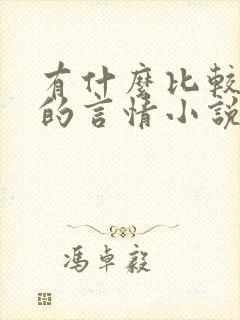 有什麼比較
的言情小說
馮卓毅